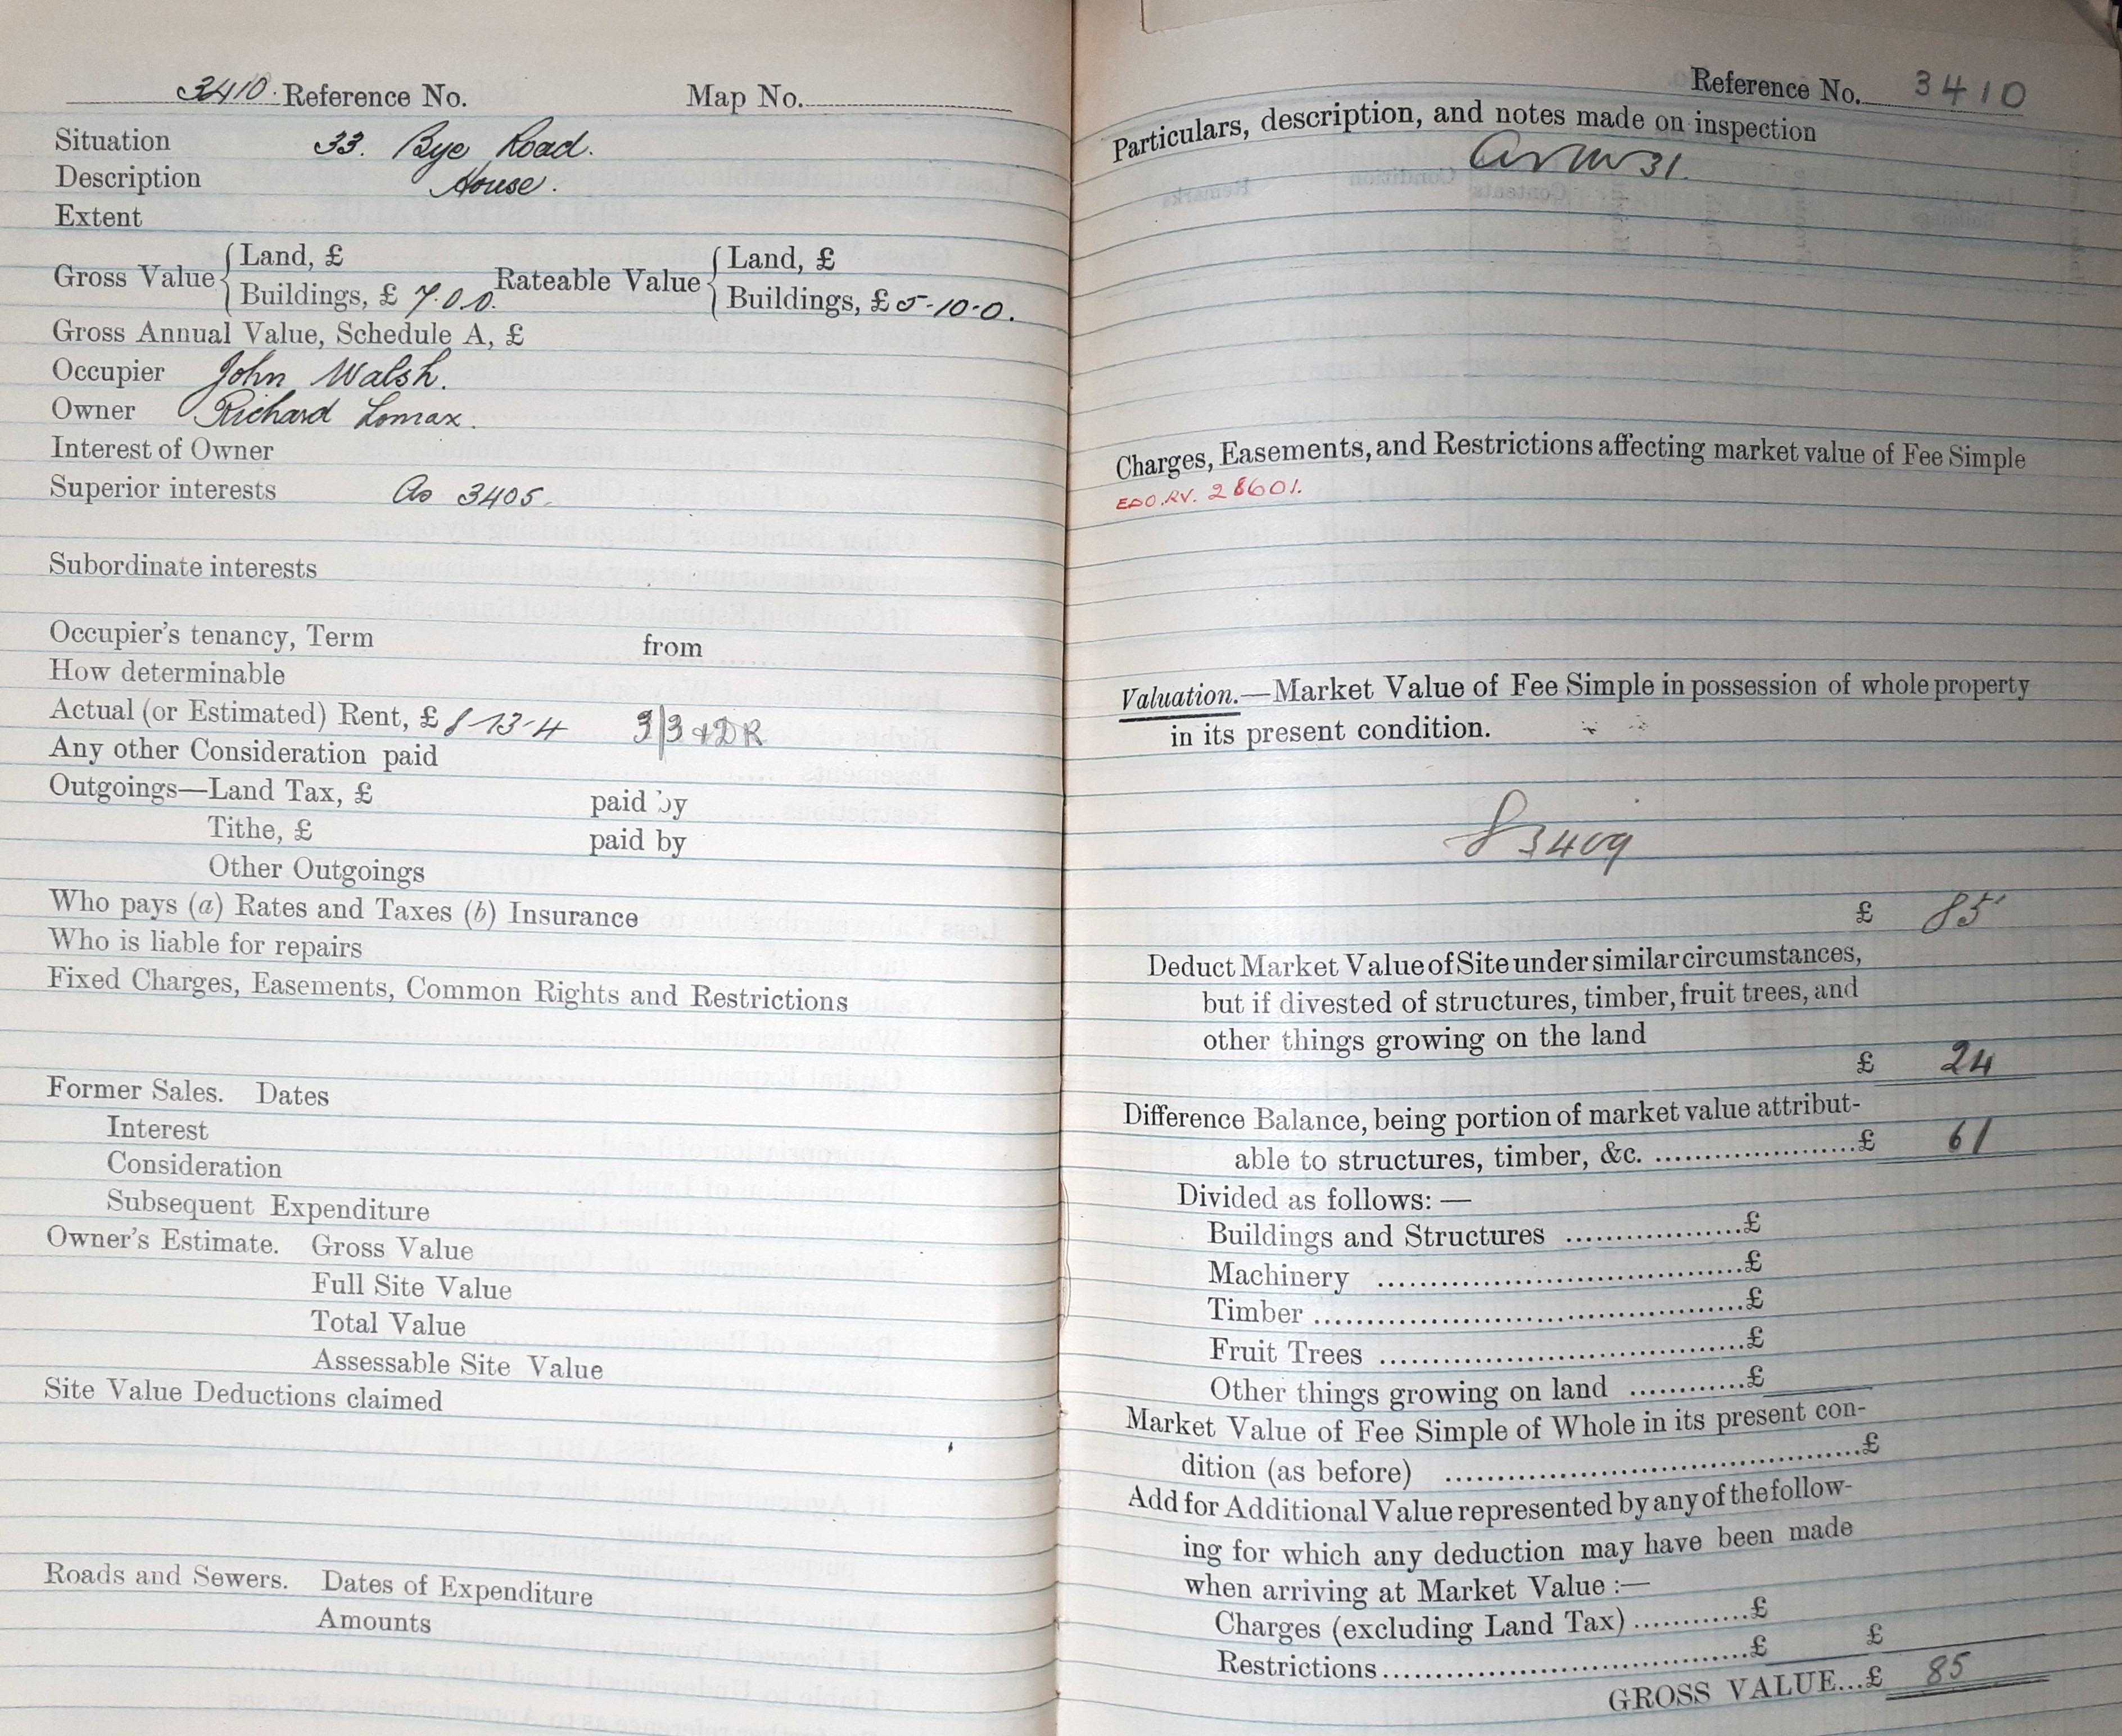 3410. Reference No. Map No.
Situation 33. Bye Road.
Description House.
Extent
Gross Value { Land, £ Rateable Value { Land, £
Buildings, £ 7.0.0. Buildings, £ 5-10-0.
Gross Annual Value, Schedule A, £
Occupier John Walsh.
Owner Richard Lomax.
Interest of Owner
Superior interests As 3405.
Subordinate interests
Occupier's tenancy, Term from
How determinable
Actual (or Estimated) Rent, £ 8-13-4 3/3 + DR
Any other Consideration paid
Outgoings—Land Tax, £ paid by
Tithe, £ paid by
Other Outgoings
Who pays (a) Rates and Taxes (b) Insurance
Who is liable for repairs
Fixed Charges, Easements, Common Rights and Restrictions
Former Sales. Dates
Interest
Consideration
Subsequent Expenditure
Owner's Estimate. Gross Value
Full Site Value
Total Value
Assessable Site Value
Site Value Deductions claimed
Roads and Sewers. Dates of Expenditure
Amounts
Reference No. 3410
Particulars, description, and notes made on inspection
31.
Charges, Easements, and Restrictions affecting market value of Fee Simple
28601.
Valuation.—Market Value of Fee Simple in possession of whole property
in its present condition.
3409
£ 85
Deduct Market Value of Site under similar circumstances,
but if divested of structures, timber, fruit trees, and
other things growing on the land
£ 24
Difference Balance, being portion of market value attribut-
able to structures, timber, &c. ....................£ 61
Divided as follows:—
Buildings and Structures ..................£
Machinery .....................................£
Timber ...........................................£
Fruit Trees .....................................£
Other things growing on land ............£
Market Value of Fee Simple of Whole in its present con-
dition (as before) ..........................................£
Add for Additional Value represented by any of the follow-
ing for which any deduction may have been made
when arriving at Market Value :—
Charges (excluding Land Tax) ............£
Restrictions....................................£ £
GROSS VALUE...£ 85